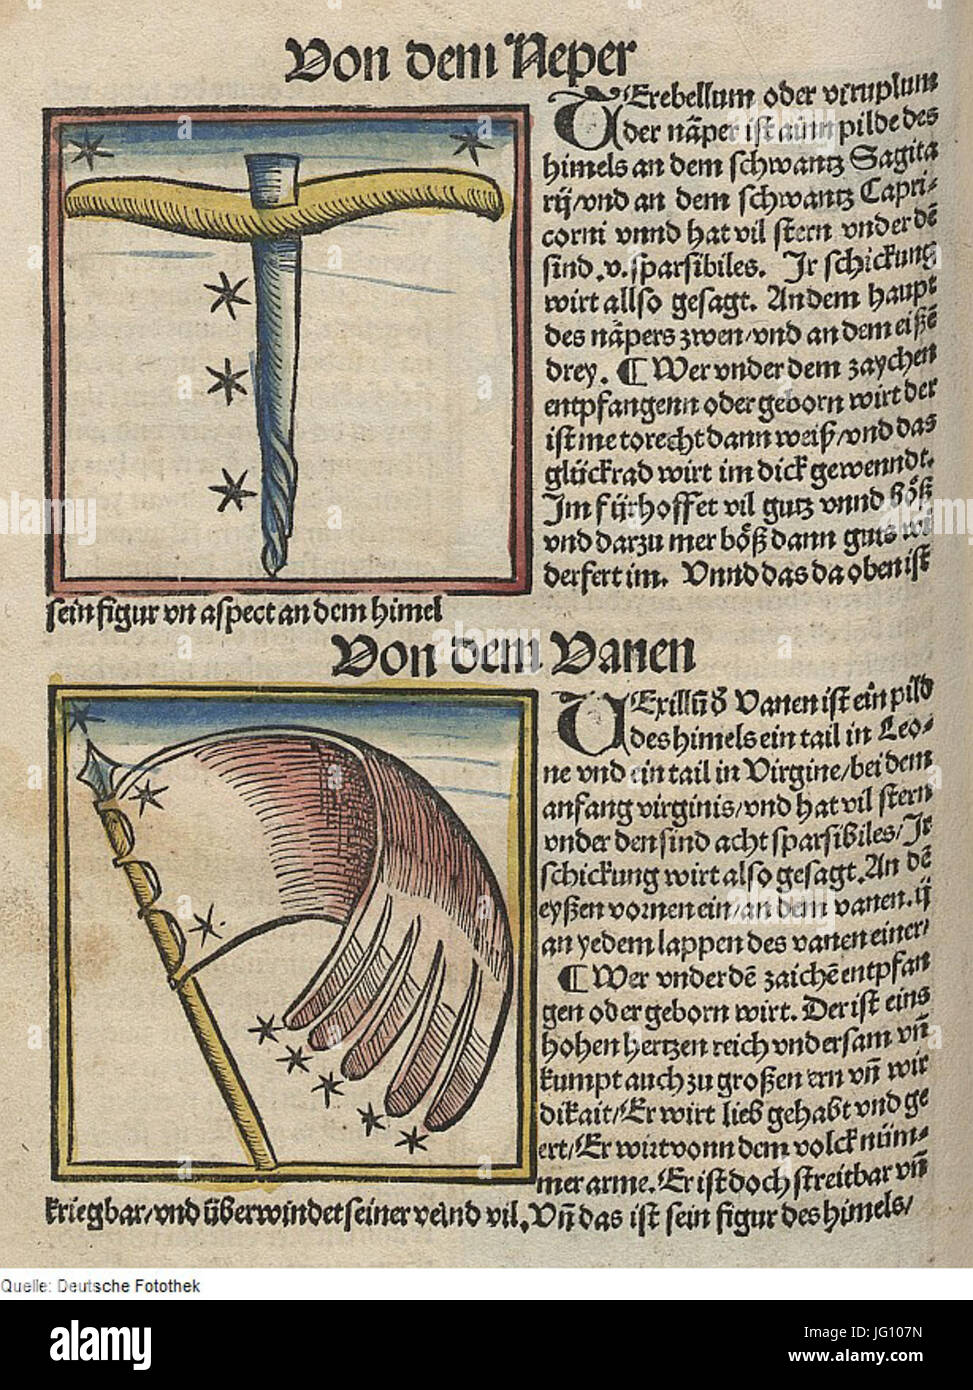 Von dem Neper
TErebellum oder viruplum
der näper ist ainn pilde des
himels an dem schwantz Sagita
rij/vnd an dem schwantz Capri⸗
corni vnnd hat vil stern vnder dē
sind .v. sparsibiles. Jr schickung
wirt allso gesagt. An dem haupt
des näpers zwen/vnd an dem eißē
drey. ¶ Wer vnder dem zaychen
entpfangenn oder geborn wirt der
ist me torecht dann weiß/vnd das
glückrad wirt im dick gewenndt.
Im fürhoffet vil gutz vnnd böß
vnd darzu mer böß dann guts wi
derfert im. Vnnd das da oben ist
sein figur vn aspect an dem himel
Von dem Vanen
VExillū d Vanen ist ein pild
des himels ein tail in Leo⸗
ne vnd ein tail in Virgine/bei dem
anfang virginis/vnd hat vil stern
vnder den sind acht sparsibiles/Jr
schickung wirt also gesagt. An dē
eyßen vornen ein/an dem vanen .ij
an yedem lappen des vanen einer/
¶ Wer vnder dē zaichē entpfan
gen oder geborn wirt. Der ist eins
hohen hertzen reich vnd ersam vn̄
kumpt auch zu großen ern vn̄ wir
dikait/Er wirt lieb gehabt vnd ge
ert/Er wirt vonn dem volck nüm⸗
mer arme. Er ist doch streitbar vn̄
kriegbar/vnd überwindet seiner veind vil. Vn̄ das ist sein figur des himels/
Quelle: Deutsche Fotothek
alamy
Image ID: JG107N
www.alamy.com